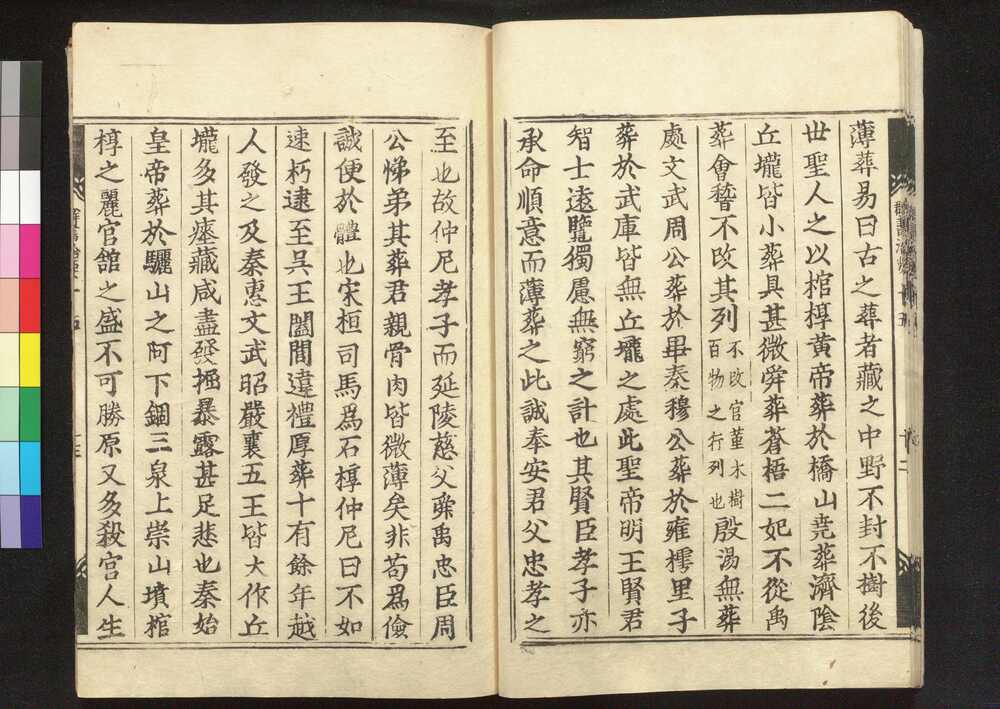 薄葬易曰古之葬者藏之中野不封不樹後
世聖人之以棺椁黃帝葬於橋山堯葬濟陰
丘壠皆小葬具甚微舜葬蒼梧二妃不從禹
葬會稽不改其列不改官菫木樹百物之行列也殷湯無葬
處文武周公葬於畢秦穆公葬於雍樗里子
葬於武庫皆無丘壠之處此聖帝明王賢君
智士遠覽獨慮無窮之計也其賢臣孝子亦
承命順意而薄葬之此誠奉安君父忠孝之
至也故仲尼孝子而延陵慈父舜禹忠臣周
公悌弟其葬君親骨肉皆微薄矣非苟爲儉
誠便於體也宋桓司馬爲石椁仲尼曰不如
速朽逮至吳王闔閭違禮厚葬十有餘年越
人發之及秦惠文武昭嚴襄五王皆大作丘
壠多其瘞藏咸盡發掘暴露甚足悲也秦始
皇帝葬於驪山之阿下錮三泉上崇山墳棺
椁之麗官舘之盛不可勝原又多殺宮人生